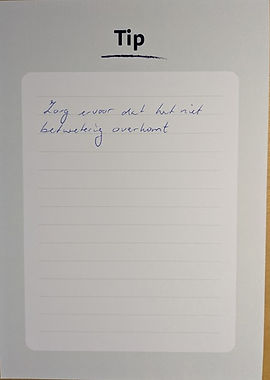 Tip
Zorg ervoor dat het niet
betweterig overkomt